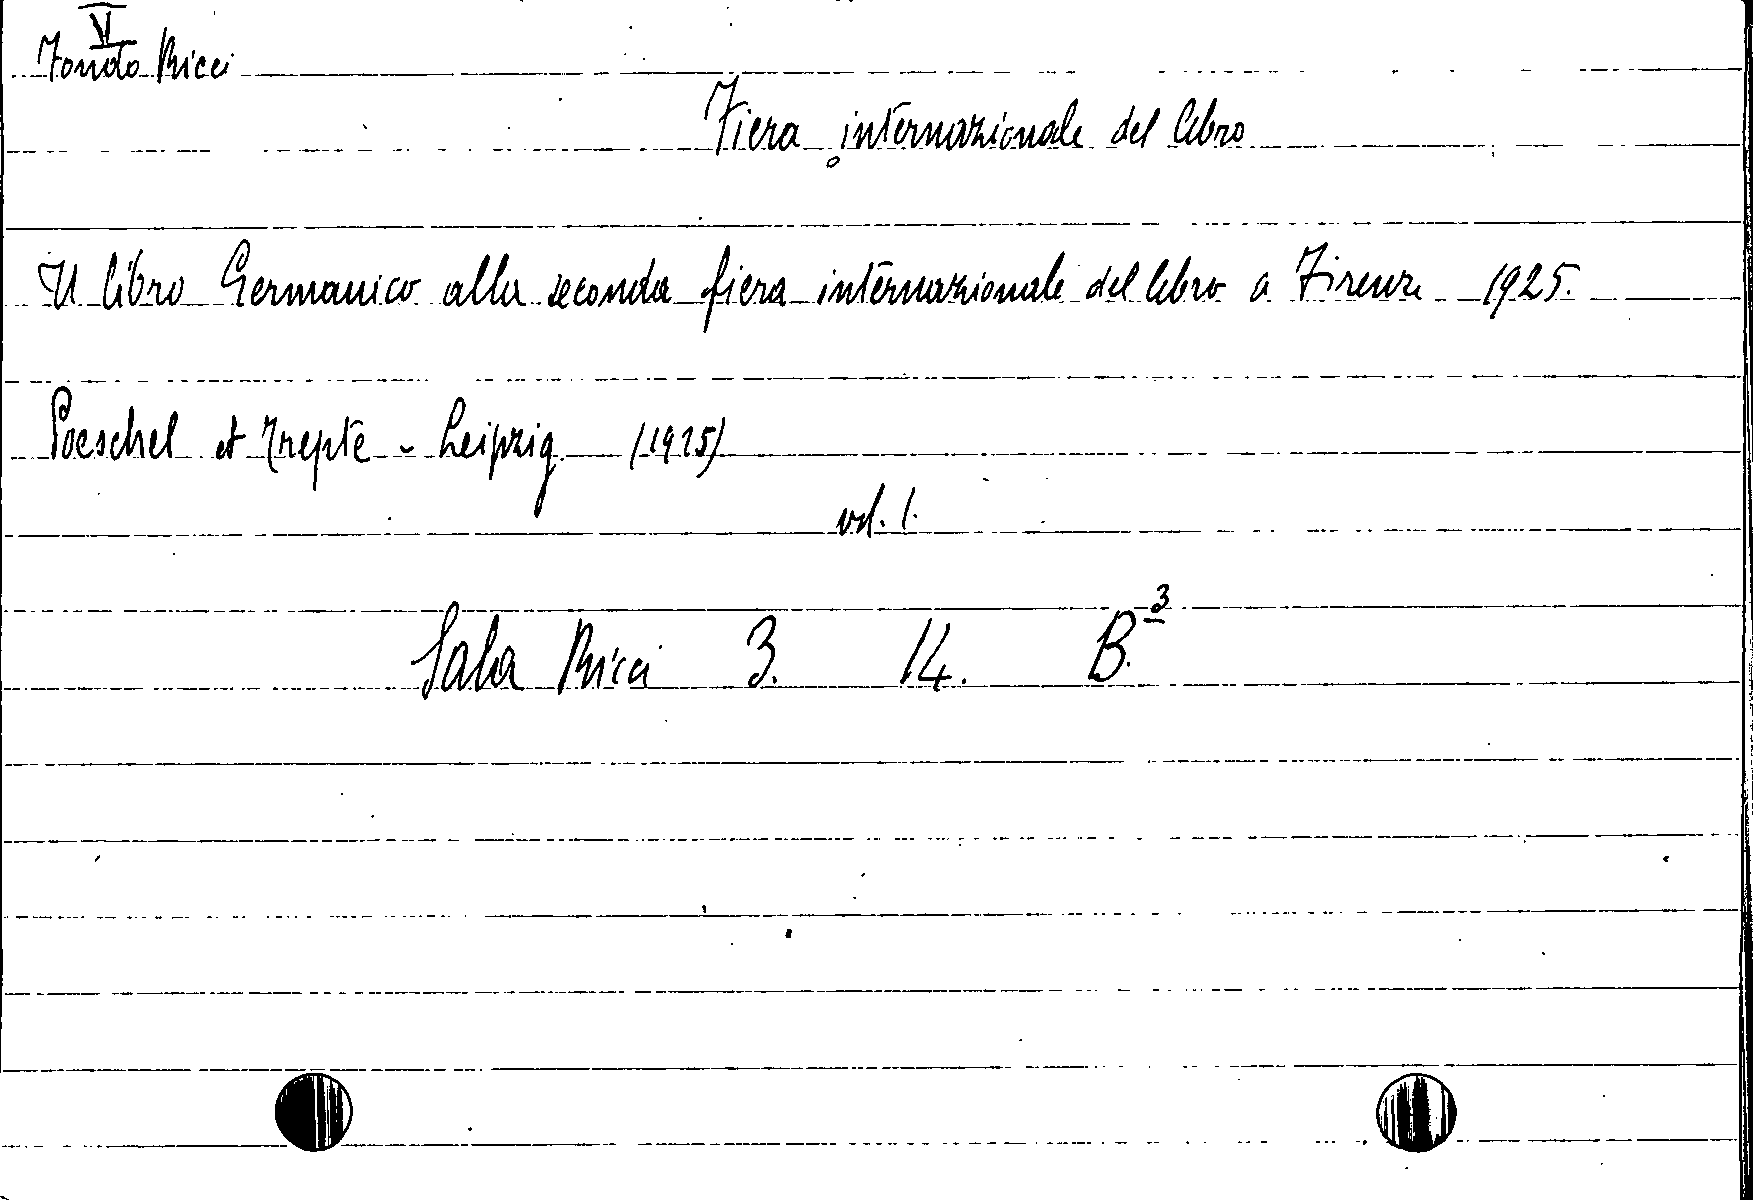 VI
Fondo Ricci
Fiera internazionale del libro
Il libro Germanico alla seconda fiera internazionale del libro a Firenze 1925.
Poeschel et Trepte - Leipzig (1925)
vol. 1.
Sala Ricci 3. 14. B.3